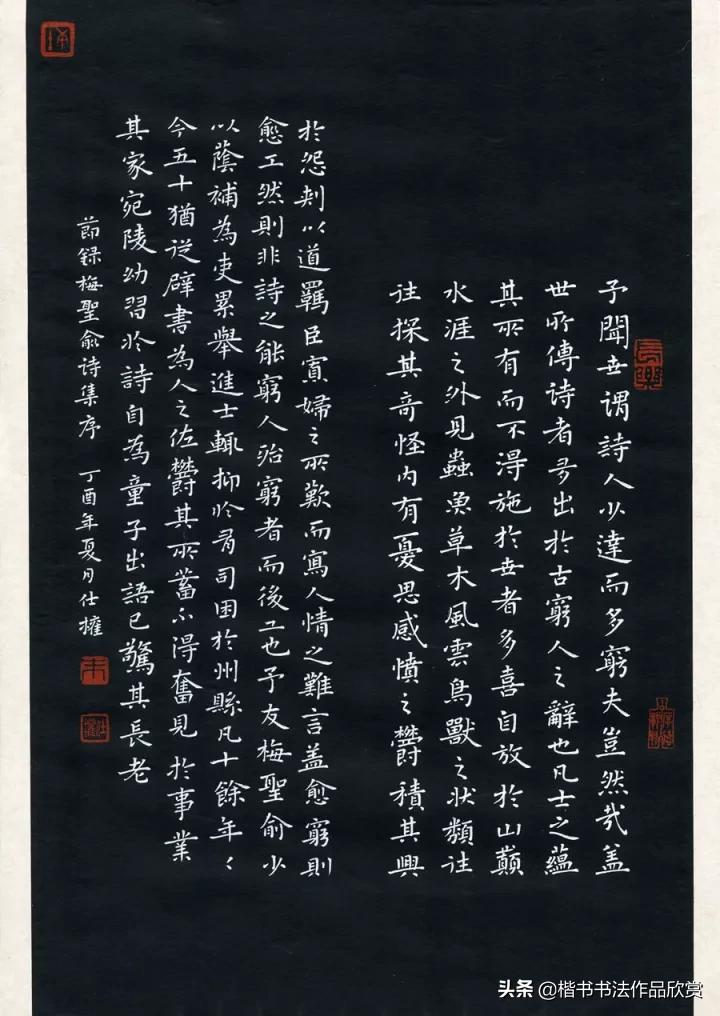 予聞世谓詩人少達而多窮夫豈然哉盖
世所傳诗者多出於古窮人之辭也凡士之蘊
其所有而不得施於世者多喜自放於山巔
水涯之外見蟲魚草木風雲鳥獸之状類往
往探其奇怪内有憂思感憤之鬱積其興
於怨刺以道羈臣寡婦之所歎而寫人情之難言盖愈窮則
愈工然則非詩之能窮人殆窮者而後工也予友梅聖俞少
以蔭補為吏累舉進士輒抑於有司困於州縣凡十餘年〻
今五十猶從辟書為人之佐鬱其所蓄不得奮見於事業
其家宛陵幼習於詩自為童子出語已驚其長老
節録梅聖俞诗集序 丁酉年夏月仕擁
長樂
头条 @楷书书法作品欣赏